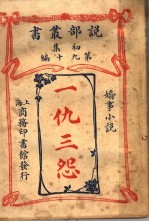 說部叢書
初集
第九十編
婚事小說
一仇三怨
上海商務印書館發行